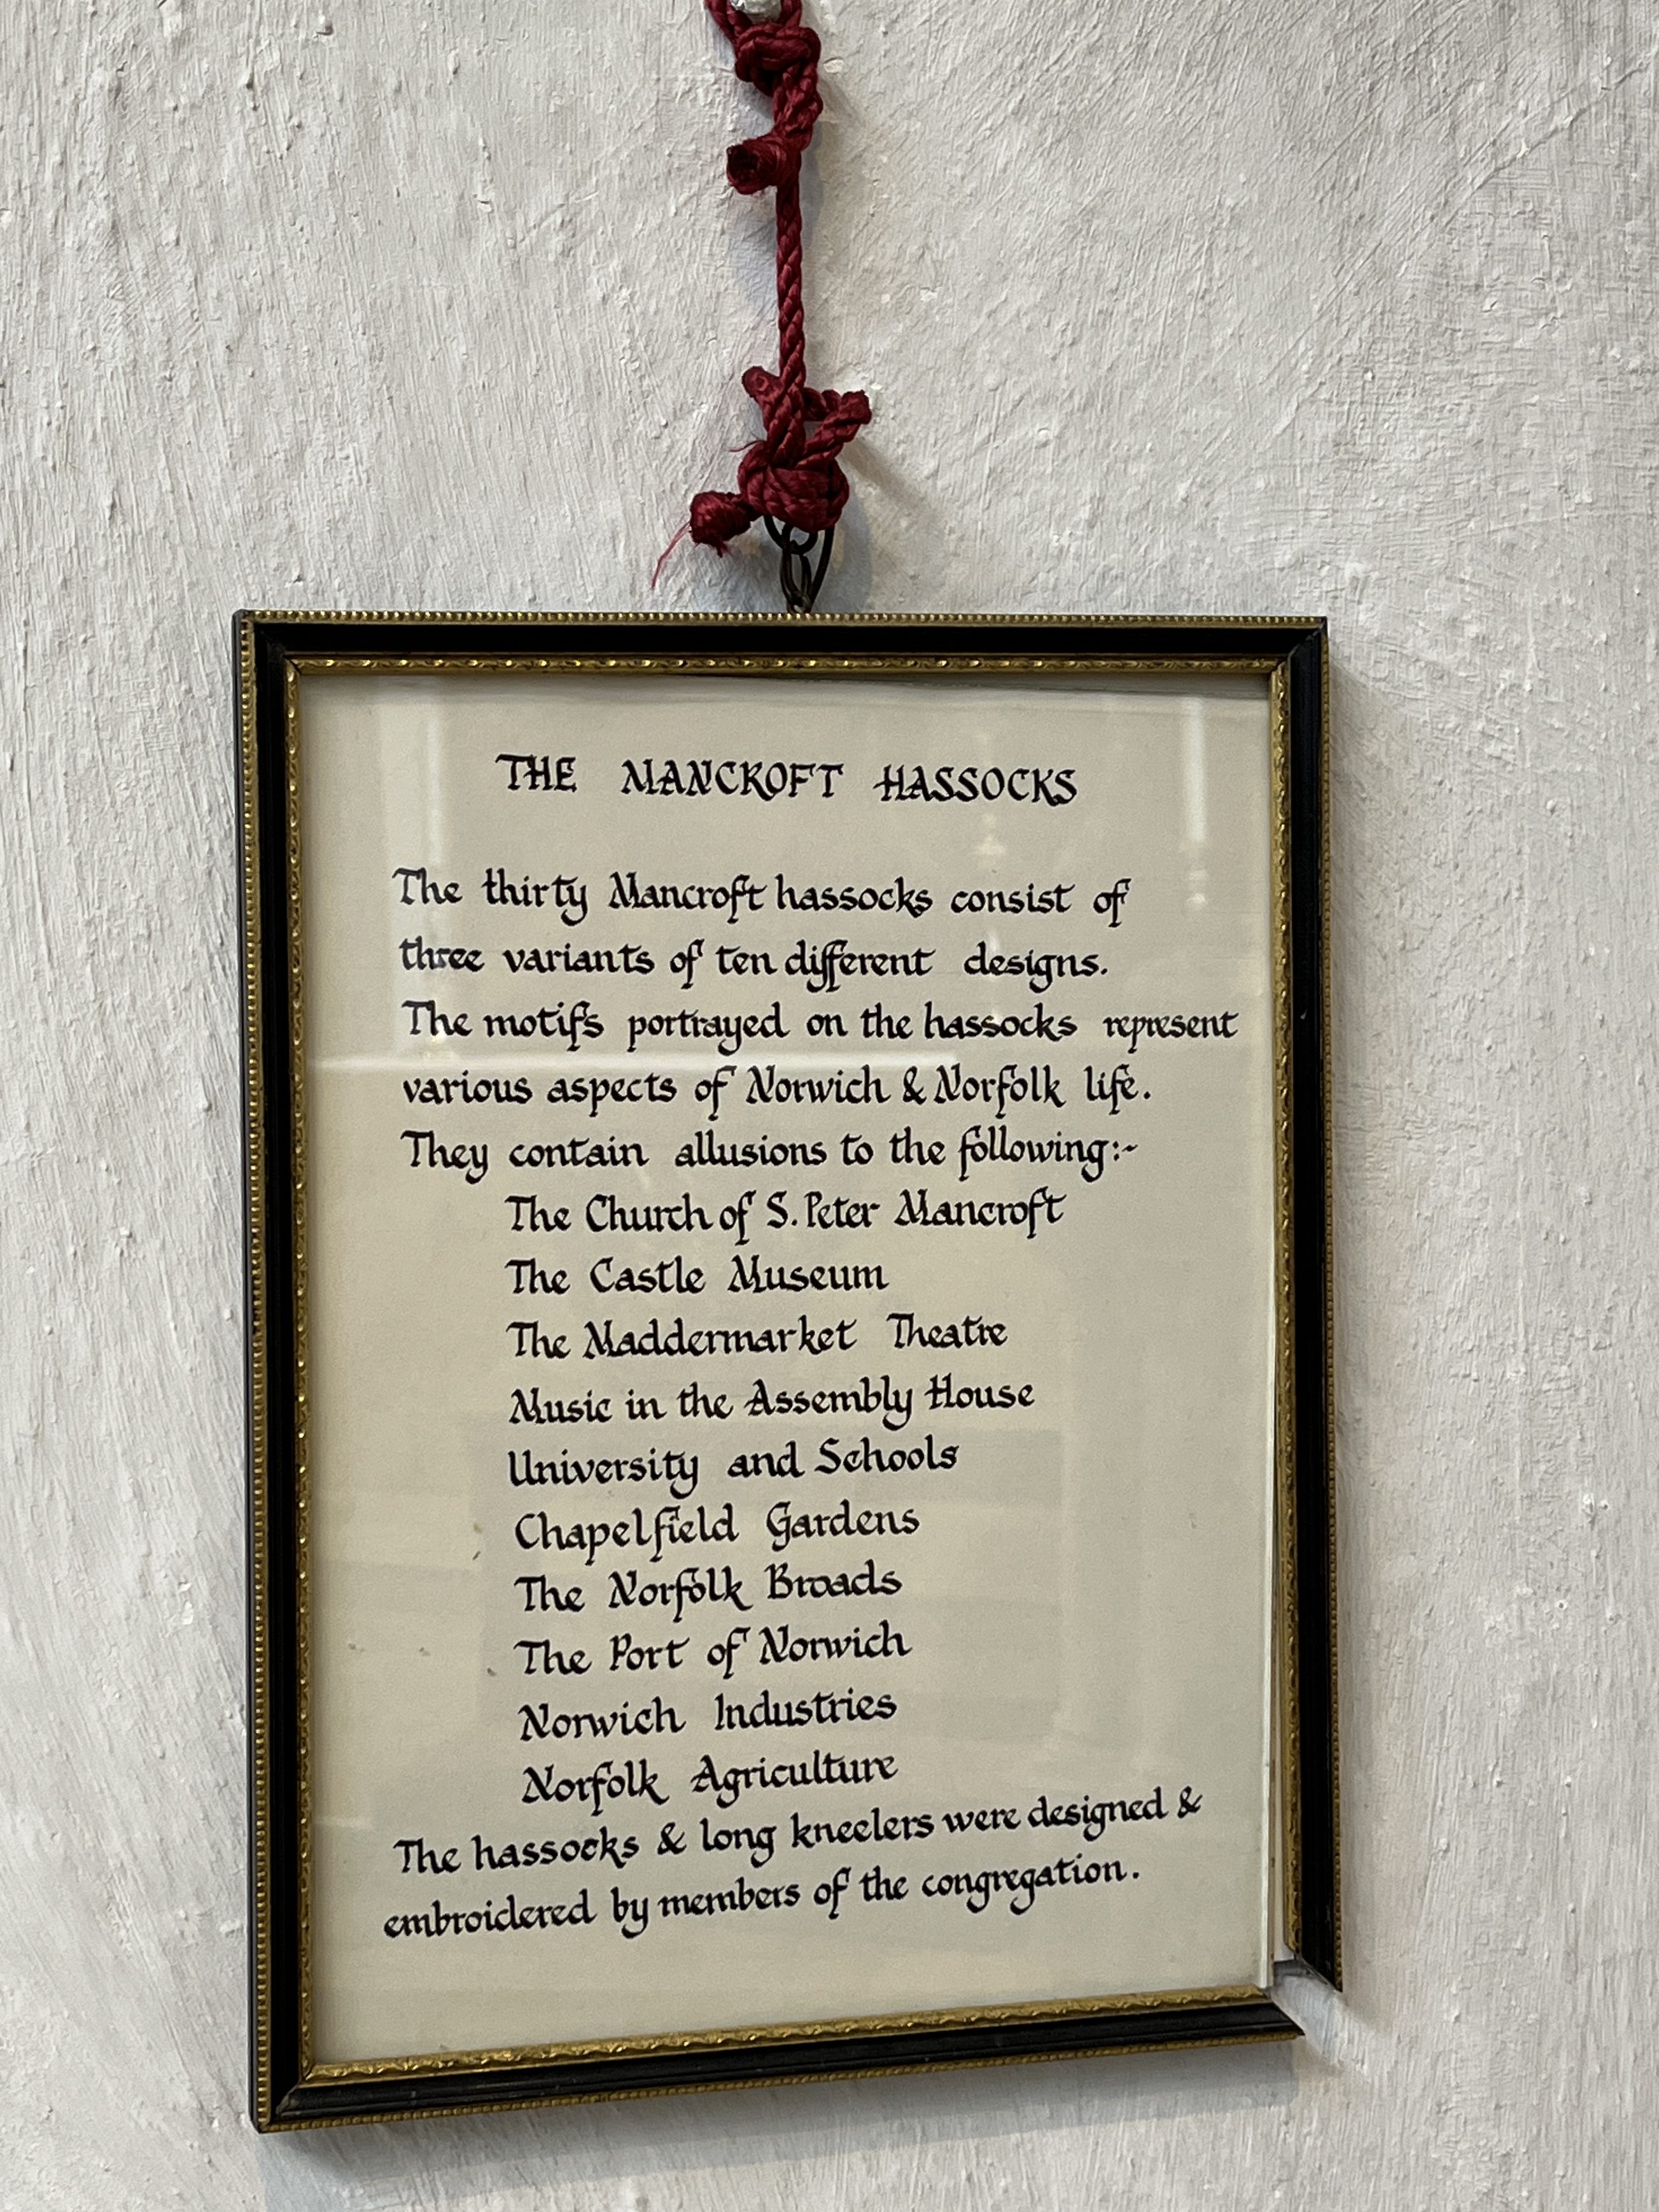 THE MANCROFT HASSOCKS
The thirty Mancroft hassocks consist of
three variants of ten different designs.
The motifs portrayed on the hassocks represent
various aspects of Norwich & Norfolk life.
They contain allusions to the following:-
The Church of S. Peter Mancroft
The Castle Museum
The Maddermarket Theatre
Music in the Assembly House
University and Schools
Chapelfield Gardens
The Norfolk Broads
The Port of Norwich
Norwich Industries
Norfolk Agriculture
The hassocks & long kneelers were designed &
embroidered by members of the congregation.